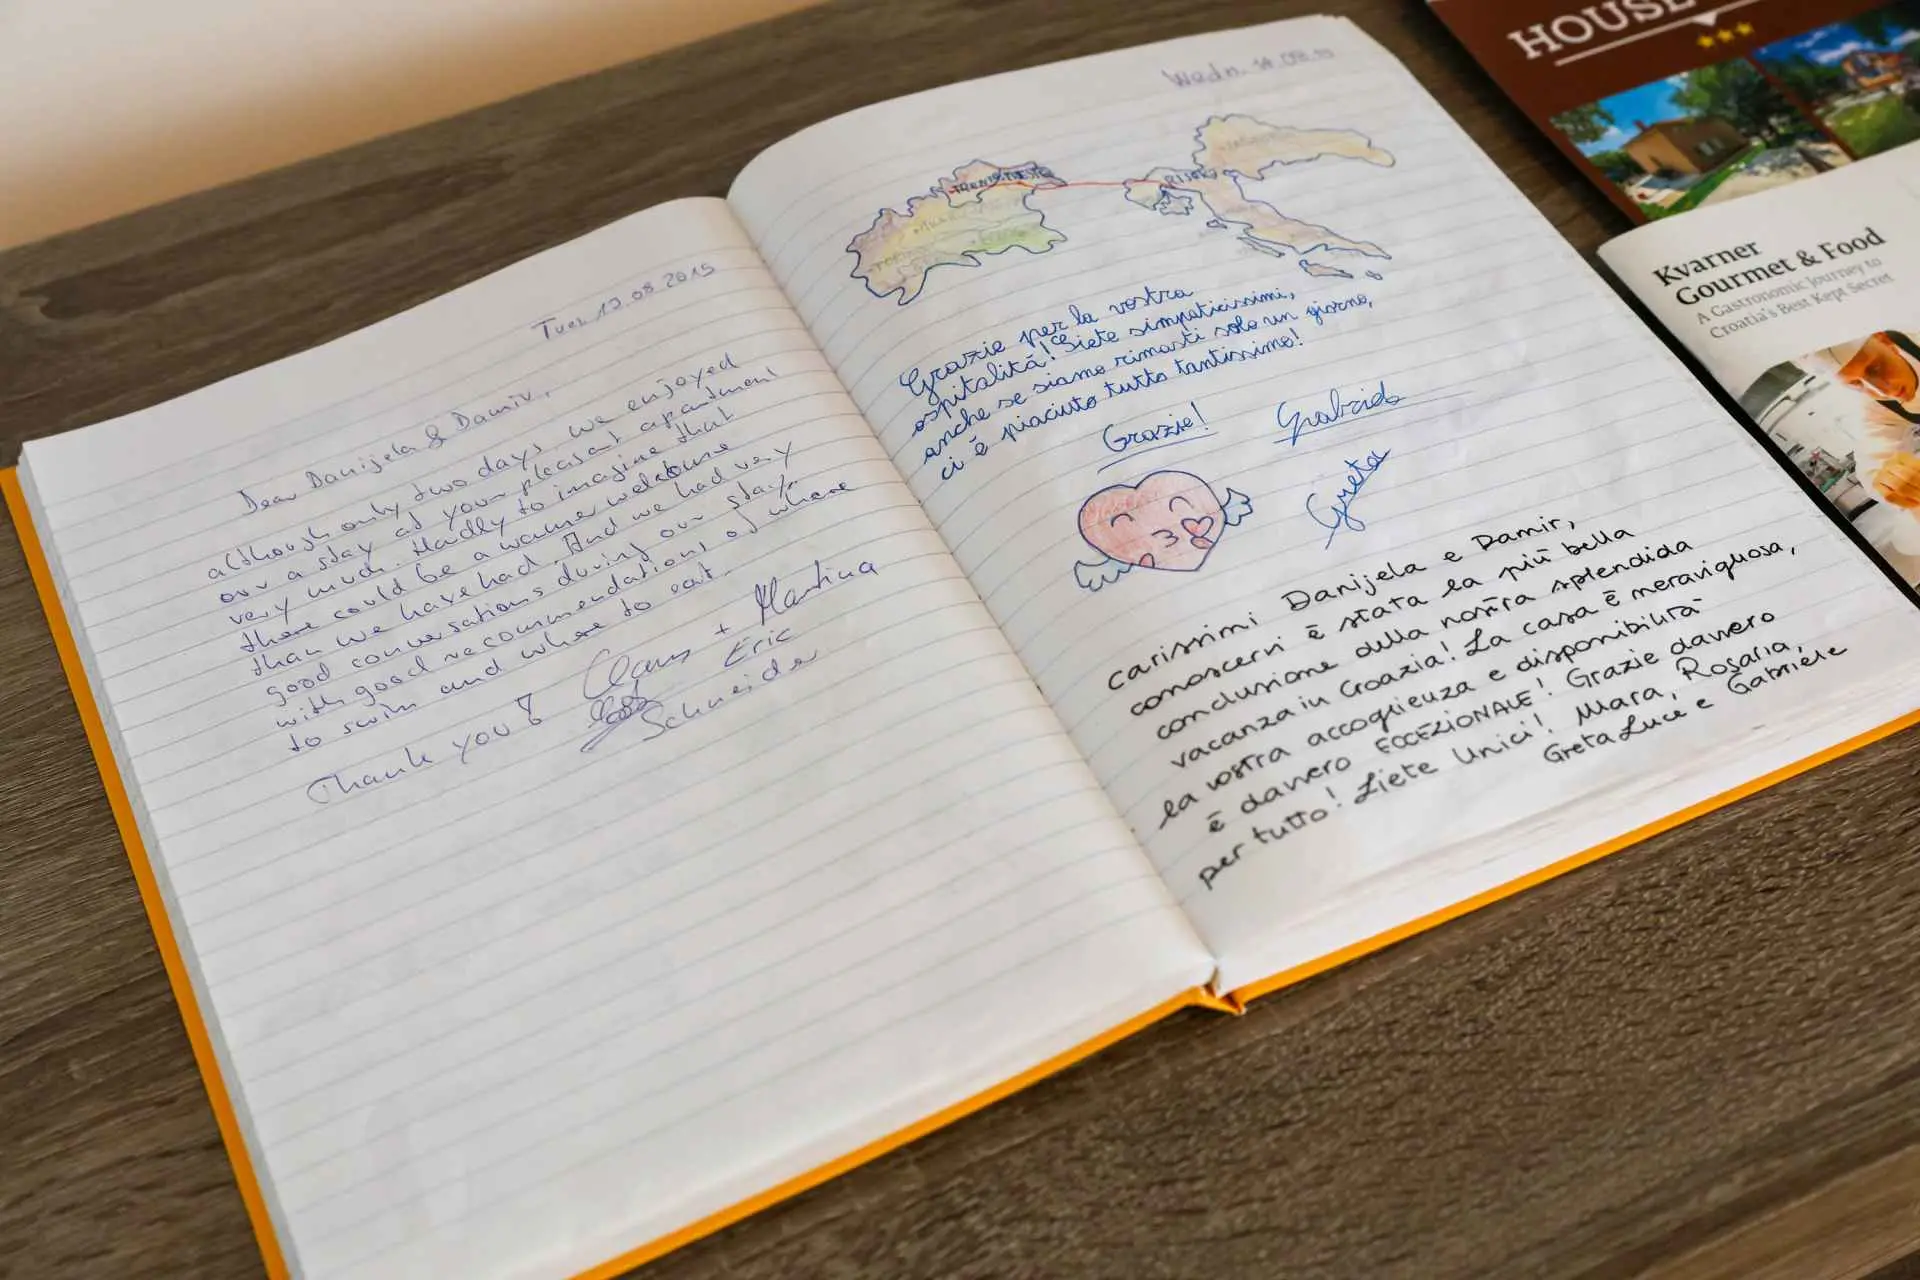 Tues 13 08 2015
Dear Danijela & Damir,
although only two days we enjoyed
our a stay at your pleasat apartment
very much. Hardly to imagine that
there could be a warme welcome
than we have had. And we had very
good conversations during our stay,
with good recommendations of where
to swim and where to eat.
Thank you! Claus + Martina
Eric
Schneider
Wedn.
Grazie per la vostra
ospitalità! Siete simpaticissimi,
anche se siamo rimasti solo un giorno,
ci è piaciuto tutto tantissimo!
Grazie! Gabriele
Greta
Carissimi Danijela e Damir,
conoscervi è stata la più bella
conclusione della nostra splendida
vacanza in Croazia! La casa è meravigliosa,
la vostra accoglienza e disponibilità
è davvero ECCEZIONALE! Grazie davvero
per tutto! Siete Unici! Mara, Rosaria,
Greta Luce e Gabriele
HOUSE
Kvarner
Gourmet & Food
A Gastronomic Journey to
Croatia's Best Kept Secret